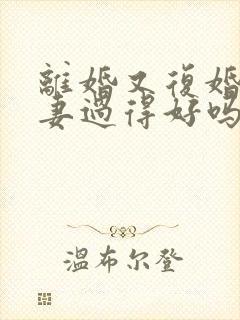 離婚又復婚
妻過得好嗎
温布尔登